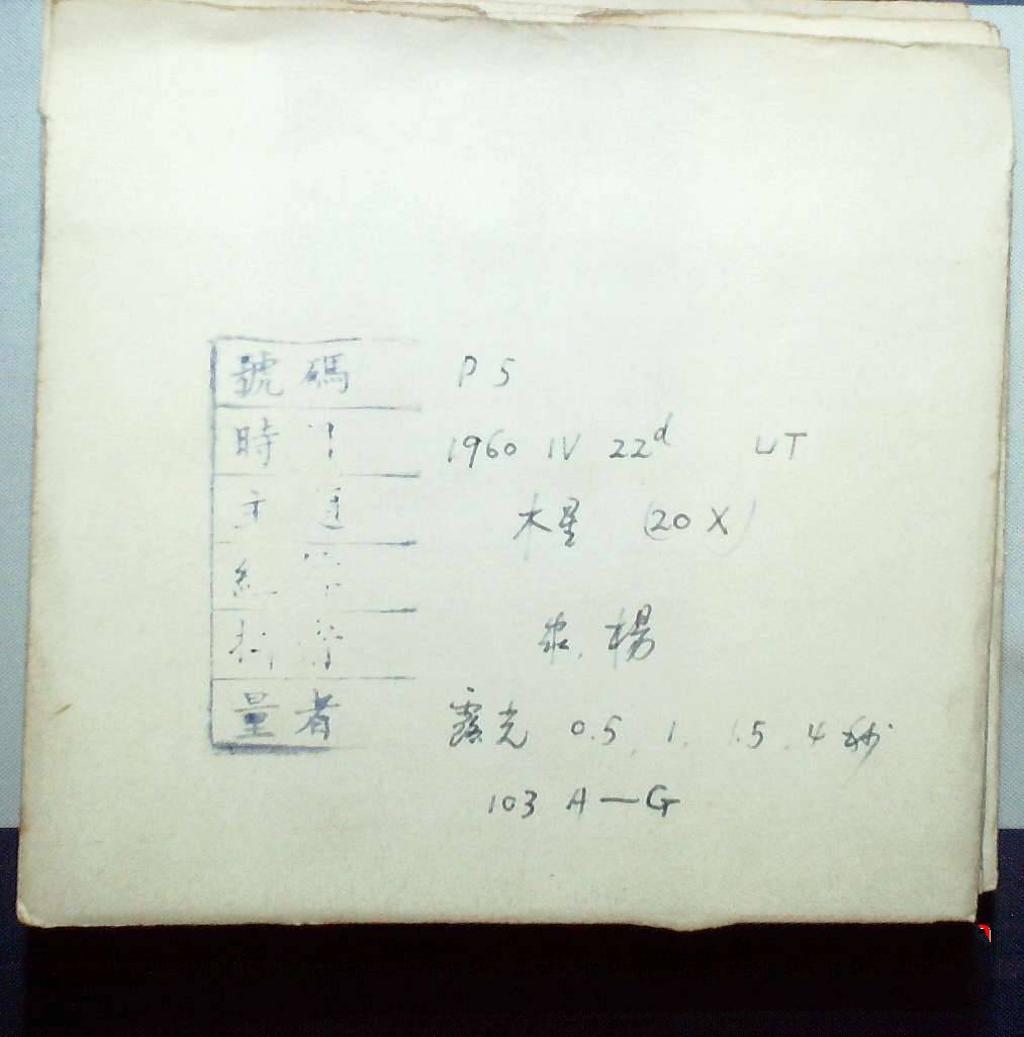 號碼 P 5
時 1960 IV 22d UT
主 木星 (20X)
楊
量者 露光 0.5, 1, 1.5, 4秒
103 A—G